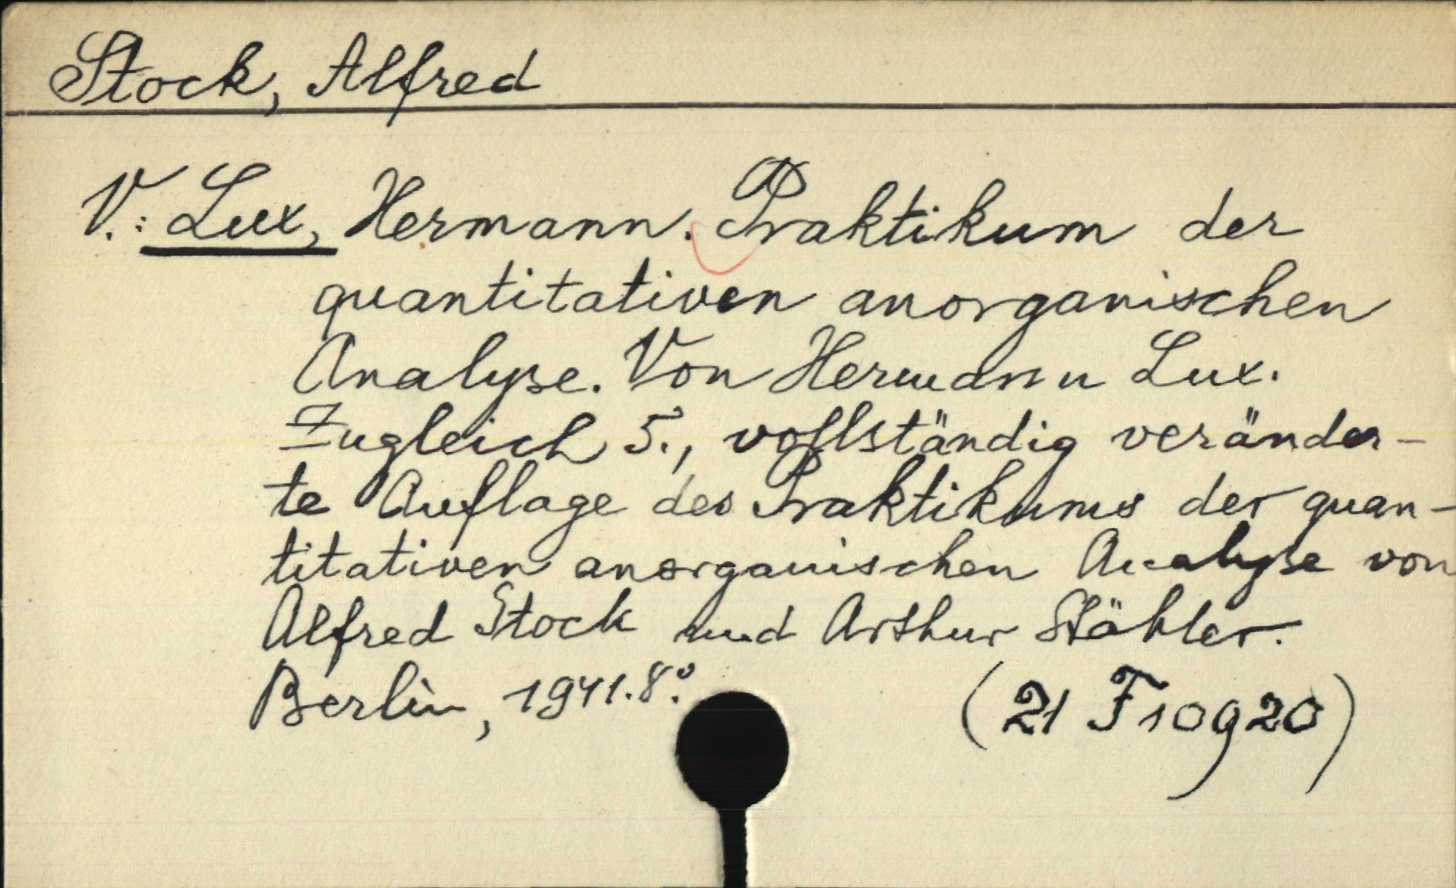 Stock, Alfred
V.: Lux, Hermann. Praktikum der
quantitativen anorganischen
Analyse. Von Hermann Lux.
Zugleich 5., vollständig veränder-
te Auflage des Praktikums der quan-
titativen anorganischen Analyse von
Alfred Stock und Arthur Stähler.
Berlin, 1941. 8°.
(21 F 10920)